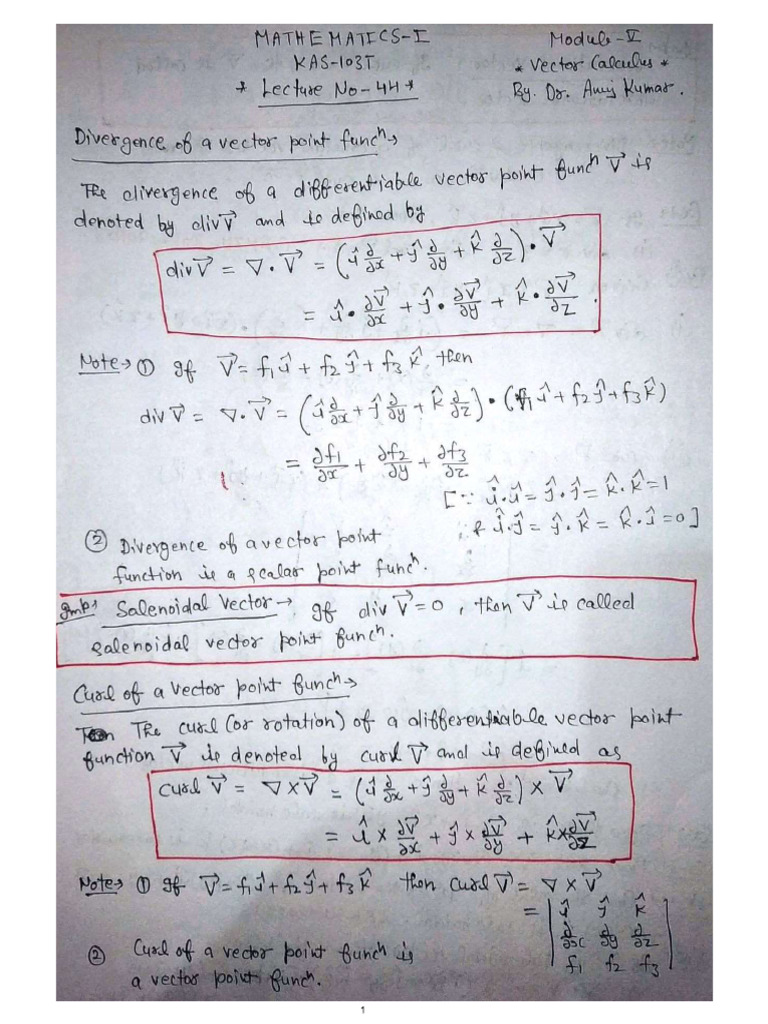 MATHEMATICS-I
KAS-103T
* Lecture No-44 *
Module-V
* Vector Calculus *
By. Dr. Anuj Kumar.
Divergence of a vector point funcⁿ→
The divergence of a differentiable vector point funcⁿ V⃗ is
denoted by div V⃗ and is defined by
div V⃗ = ∇·V⃗ = (î ∂/∂x + ĵ ∂/∂y + k̂ ∂/∂z)·V⃗
= î·∂V⃗/∂x + ĵ·∂V⃗/∂y + k̂·∂V⃗/∂z.
Note→ ① If V⃗ = f₁î + f₂ĵ + f₃k̂ then
div V⃗ = ∇·V⃗ = (î ∂/∂x + ĵ ∂/∂y + k̂ ∂/∂z)·(f₁î + f₂ĵ + f₃k̂)
= ∂f₁/∂x + ∂f₂/∂y + ∂f₃/∂z
[∵ î·î = ĵ·ĵ = k̂·k̂ = 1
& î·ĵ = ĵ·k̂ = k̂·î = 0]
② Divergence of a vector point
function is a scalar point funcⁿ.
Imp: Salenoidal Vector→ If div V⃗ = 0, then V⃗ is called
salenoidal vector point funcⁿ.
Curl of a vector point funcⁿ→
The curl (or rotation) of a differentiable vector point
function V⃗ is denoted by curl V⃗ and is defined as
curl V⃗ = ∇×V⃗ = (î ∂/∂x + ĵ ∂/∂y + k̂ ∂/∂z) × V⃗
= î × ∂V⃗/∂x + ĵ × ∂V⃗/∂y + k̂ × ∂V⃗/∂z
Note→ ① If V⃗ = f₁î + f₂ĵ + f₃k̂ then curl V⃗ = ∇×V⃗
= | î ĵ k̂ |
| ∂/∂x ∂/∂y ∂/∂z |
| f₁ f₂ f₃ |
② Curl of a vector point funcⁿ is
a vector point funcⁿ.
1